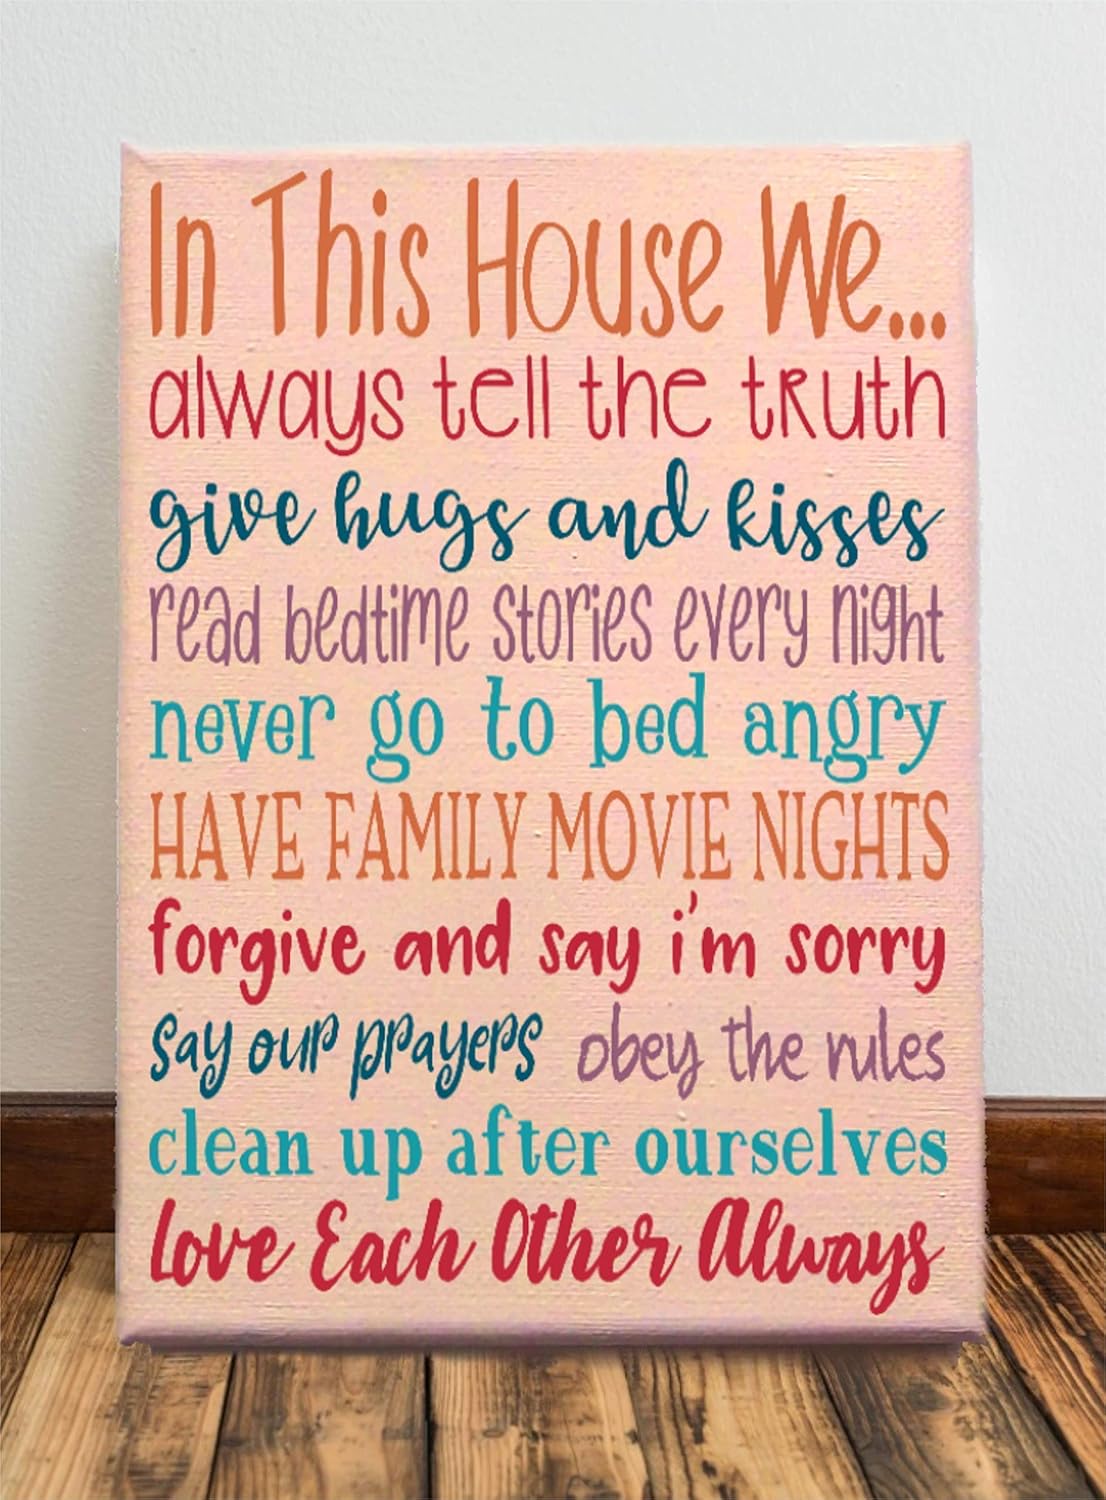 In This House We...
always tell the tRuth
give hugs and kisses
read bedtime stories every night
never go to bed angry
HAVE FAMILY MOVIE NIGHTS
forgive and say i'm sorry
say our prayers obey the rules
clean up after ourselves
Love Each Other Always